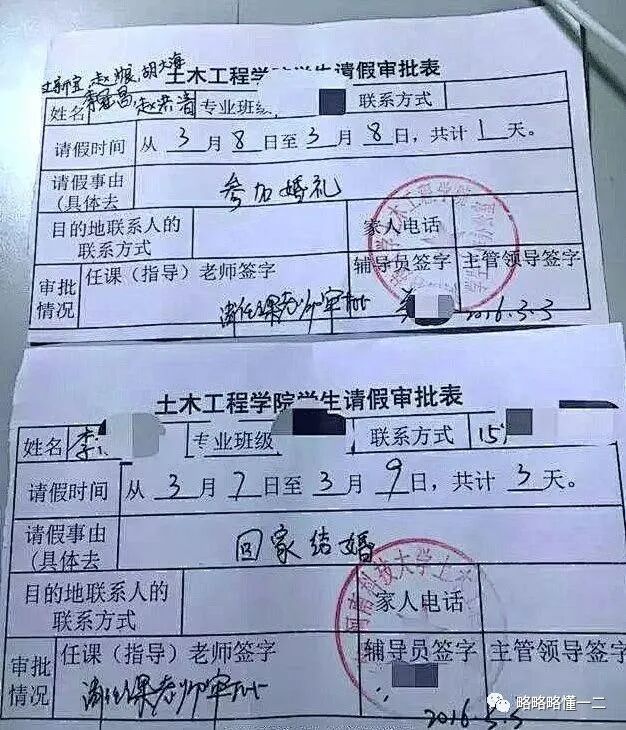 土木工程学院学生请假审批表
赵娘 胡大海
姓名 李冠昌 赵洪涛 专业班级 联系方式
请假时间 从 3 月 8 日至 3 月 8 日，共计 1 天。
请假事由
(具体去
参加婚礼
目的地联系人的
联系方式
家人电话
审批
情况
任课（指导）老师签字
辅导员签字 主管领导签字
请任课老师审批
2016.3.3
土木工程学院学生请假审批表
姓名 李 专业班级 联系方式 15
请假时间 从 3 月 7 日至 3 月 9 日，共计 3 天。
请假事由
(具体去
回家结婚
目的地联系人的
联系方式
家人电话
科技大学土木
审批
情况
任课（指导）老师签字
辅导员签字 主管领导签字
请任课老师审批
2016.3.3
略略略懂一二